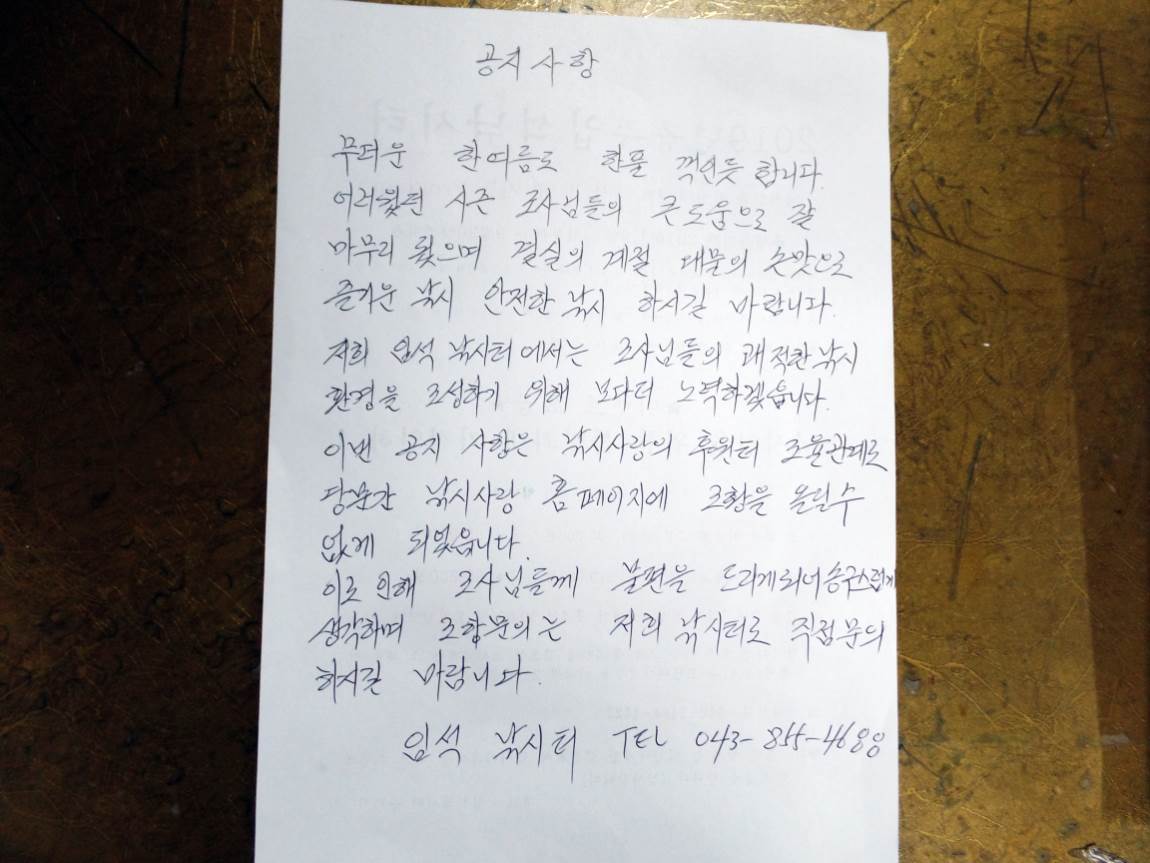 공지사항
무더운 한여름도 한풀 꺽인듯 합니다.
어려웠던 시즌 조사님들의 큰도움으로 잘
마무리 됐으며 결실의 계절 대물의 손맛으로
즐거운 낚시 안전한 낚시 하시길 바랍니다.
저희 임석 낚시터에서는 조사님들의 쾌적한 낚시
환경을 조성하기 위해 보다더 노력하겠습니다.
이번 공지 사항은 낚시사랑의 후원터 조율관계로
당분간 낚시사랑 홈페이지에 조황을 올릴수
없게 되었습니다.
이로 인해 조사님들께 불편을 드리게되어 송구스럽게
생각하며 조황문의는 저희 낚시터로 직접문의
하시길 바랍니다.
임석 낚시터 TEL 043-855-4688